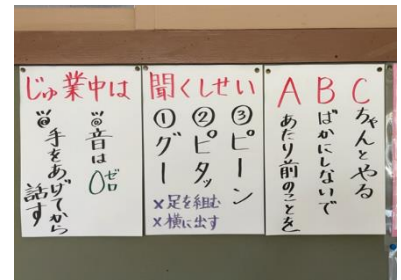 じゅ業中は
音は0
ゼロ
手をあげてから
話す
聞くしせい
①グー
②ピタッ
③ピーン
×足を組む
×横に出す
A B C
あたり前のことを
ばかにしないで
ちゃんとやる